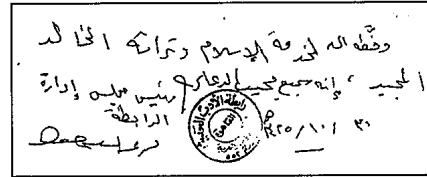 وفّقه الله لخدمة الإسلام وتراثه الخالد
المجيد، إنه سميع مجيب الدعاء رئيس مجلس إدارة
الرابطة
٣٠/١٠/١٤٢٥هـ